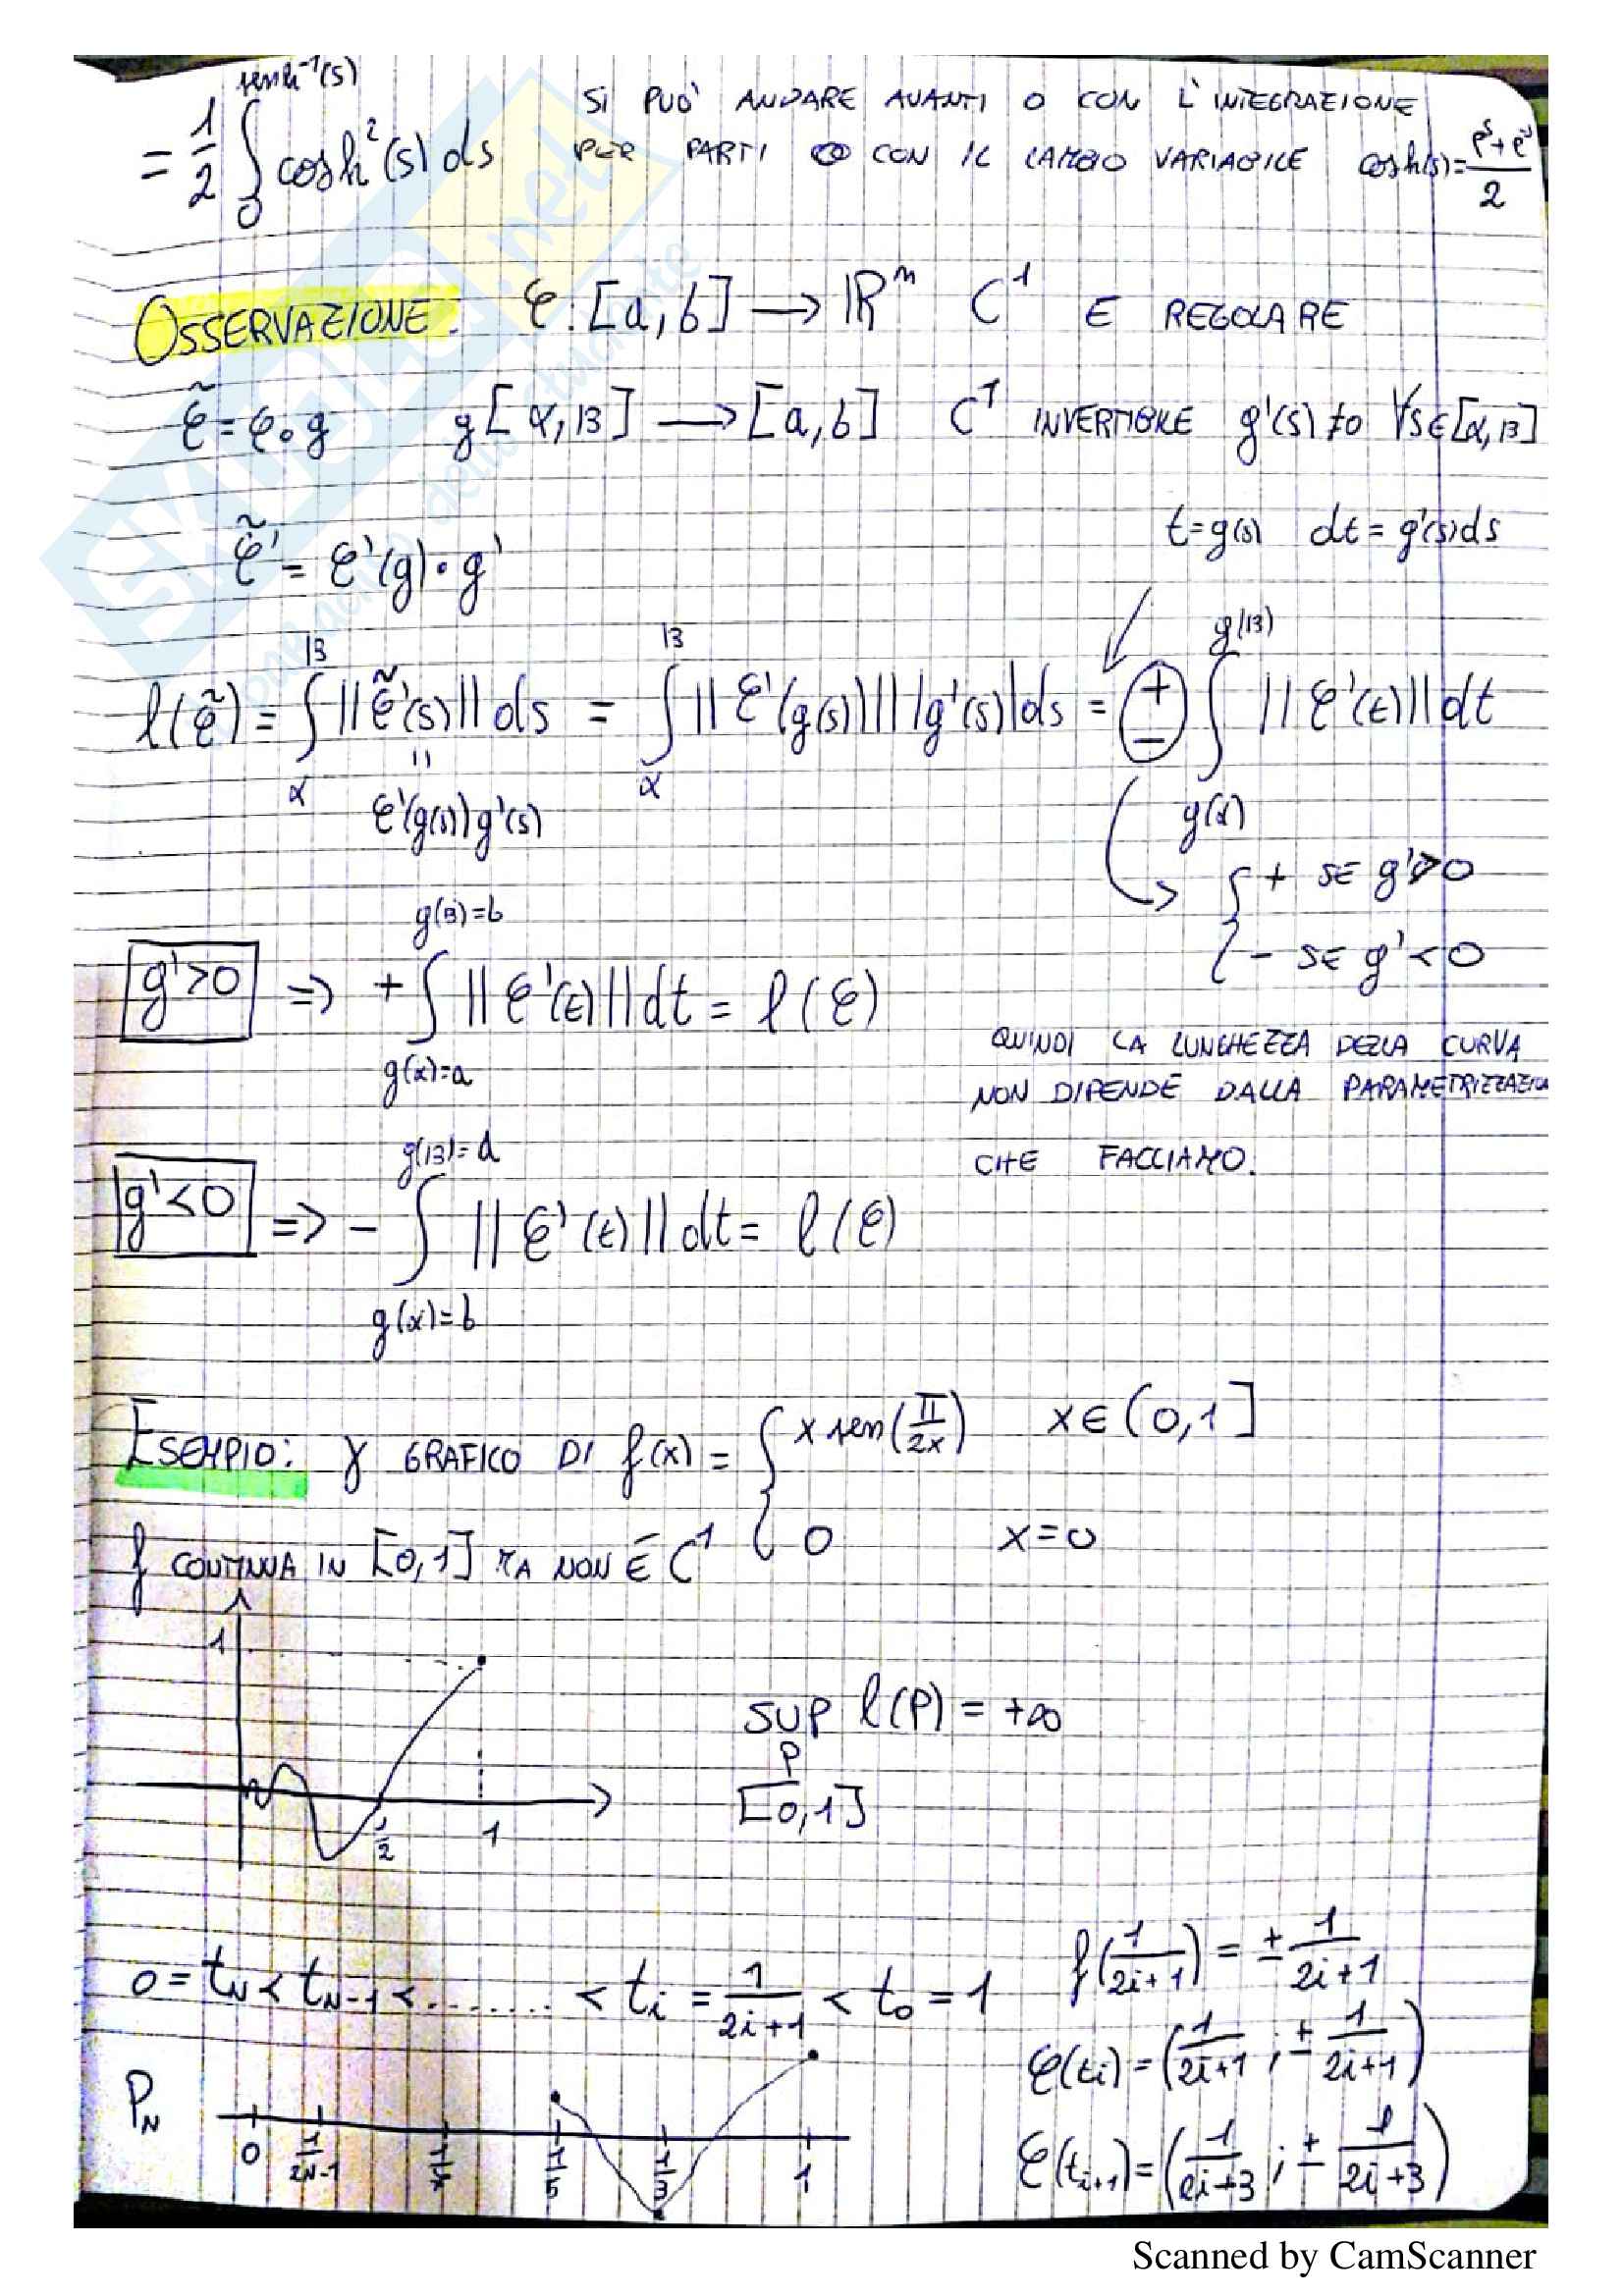 senh⁻¹(s)
= 1/2 ∫₀ cosh²(s) ds SI PUÒ ANDARE AVANTI O CON L'INTEGRAZIONE
PER PARTI O CON IL CAMBIO VARIABILE cosh(s) = (eˢ + e⁻ˢ)/2
OSSERVAZIONE: φ: [a, b] → ℝⁿ C¹ E REGOLARE
φ̃ = φ∘g g[α, β] → [a, b] C¹ INVERTIBILE g'(s) ≠ 0 ∀s∈[α, β]
t = g(s) dt = g'(s)ds
φ̃' = φ'(g)·g'
l(φ̃) = ∫_α^β ||φ̃'(s)|| ds = ∫_α^β ||φ'(g(s))|| |g'(s)| ds = ± ∫_{g(α)}^{g(β)} ||φ'(t)|| dt
||
φ'(g(s)) g'(s)
{ + SE g' > 0
{ - SE g' < 0
g' > 0 ⇒ + ∫_{g(α)=a}^{g(β)=b} ||φ'(t)|| dt = l(φ)
QUINDI LA LUNGHEZZA DELLA CURVA
NON DIPENDE DALLA PARAMETRIZZAZION
CHE FACCIAMO.
g' < 0 ⇒ - ∫_{g(α)=b}^{g(β)=a} ||φ'(t)|| dt = l(φ)
ESEMPIO: γ GRAFICO DI f(x) = { x sen(π/2x) x ∈ (0, 1]
{ 0 x = 0
f CONTINUA IN [0, 1] MA NON È C¹
1
SUP l(P) = +∞
P
[0, 1]
1/2 1
0 = t_N < t_{N-1} < ........ < t_i = 1/(2i+1) < t_0 = 1
f(1/(2i+1)) = ± 1/(2i+1)
φ(t_i) = (1/(2i+1) ; ± 1/(2i+1))
P_N
0 1/(2N-1) 1/7 1/5 1/3 1
φ(t_{i+1}) = (1/(2i+3) ; ± 1/(2i+3))
Scanned by CamScanner